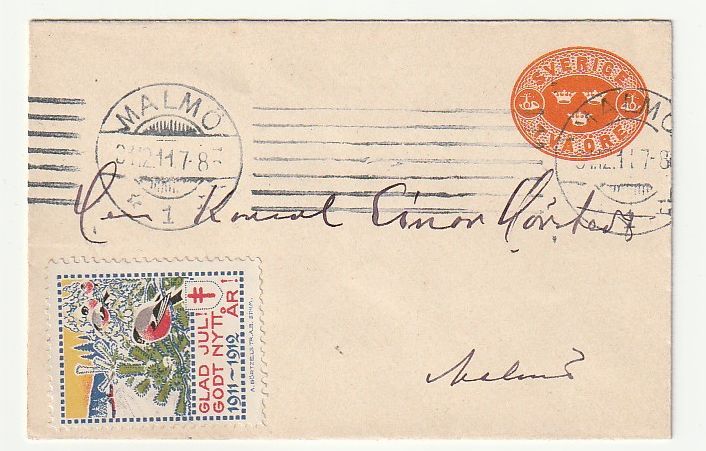 SVERIGE
TVÅ ÖRE
MALMÖ
31.12.11 7-8
1
MALMÖ
31.12.11 7-8
Herr Konsul Einar
Malmö
GLAD JUL!
GODT NYTT ÅR!
1911-1912